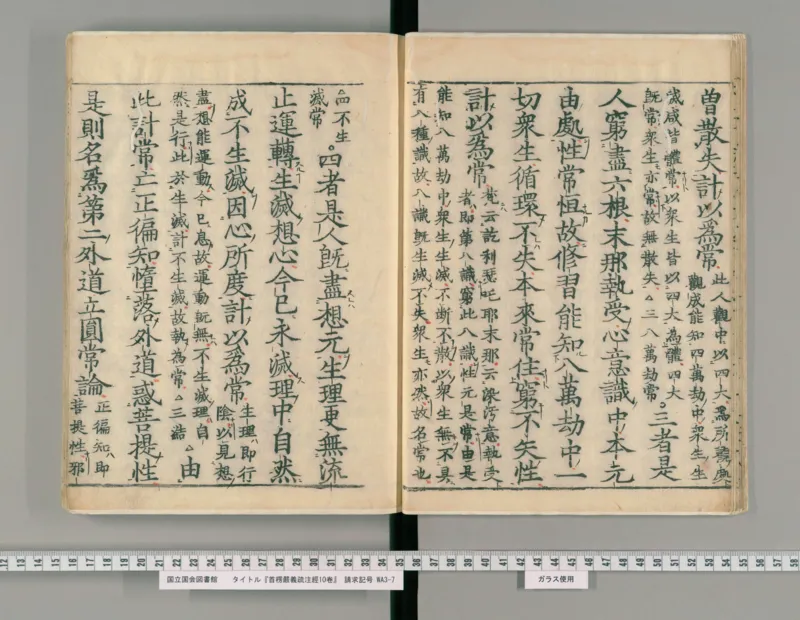 曽散失計以為常
此人觀中以四大為所觀
觀成能知四萬劫中衆生生
滅咸皆體常以衆生皆以四大為體四大
既常衆生亦常故無散失△三八萬劫常
三者是
人窮盡六根末那執受心意識中本元
由處性常恒故修習能知八萬劫中一
切衆生循環不失本來常住窮不失性
計以為常
梵云訖利瑟吒耶末那云染污意執受
者即第八識窮此八識性元是常由是
能知八萬劫中衆生生滅不斷不散以衆生無不具
有八種識故八識既生滅不失衆生亦然故名常也
不生
滅常
四者是人既盡想元生理更無流
止運轉生滅想心今已永滅理中自然
成不生滅因心所度計以為常
生理即行
陰以見想
盡想能運動今已息故運動既無不生滅理自
然是行此於生滅計不生滅故執為常△三結
由
此計常亡正徧知墮落外道惑菩提性
是則名為第二外道立圓常論
正徧知即
菩提性邪
国立国会図書館 タイトル『首楞嚴義疏注經10巻』 請求記号 WA3-7
ガラス使用